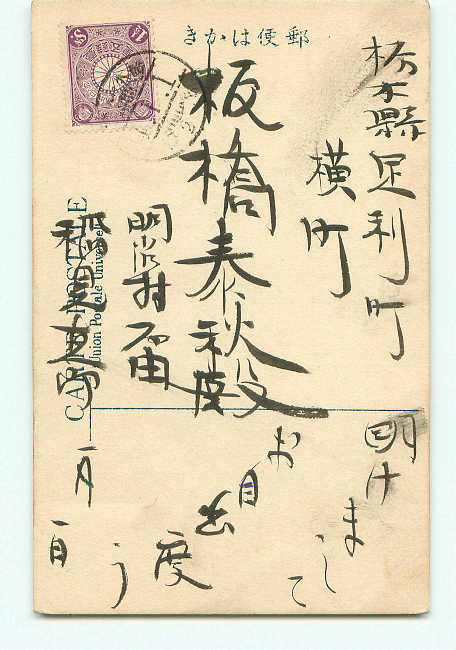 きかは便郵
栃木縣足利町
横町
板橋泰秋殿
明治村
稲見
CARTE POSTALE
Union Postale Universelle
明けまして
お目出度う
一月
一日